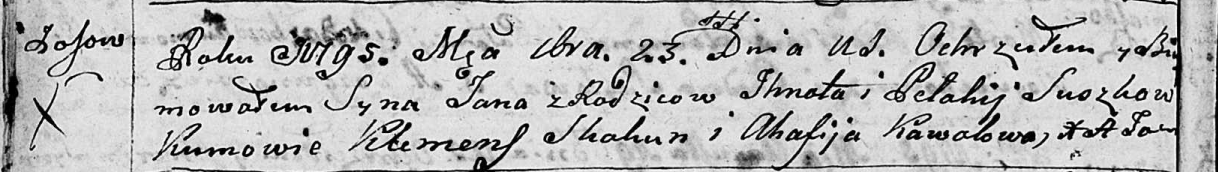 Łosow
Roku 1795. Mca 23. Dnia Ochrzciłem y Bi
mowałem Syna Jana z Rodzicow Ihnata i Pełahij Suszkow
Kumowie Klemens Skakun i Ahafija Kawalowa, X